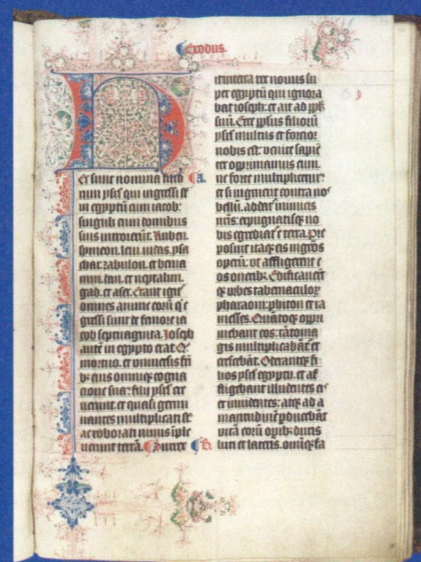 Exodus.
H
Ec sunt nomina filio
rum ysrl qui ingressi sūt
in egyptū cum iacob:
singuli cum domibus
suis introierūt. Ruben.
symeon. leui. iudas. ysa
char. zabulon. et benia
min. dan. et neptalim.
gad. et aser. Erant igit
omnes anime eorū q̄ e
gressi sunt de femore ia
cob septuaginta. Ioseph
autē in egypto erat. Q°
mortuo. et vniuersis frī
b; eius omniq; cogna
cione sua: filij ysrl cre
uerunt. et quasi germi
nantes multiplicati sūt
ac roborati nimis īple
uerunt terrā. Surrex
a.
b.
it interea rex nouus su
per egyptū qui ignora
bat ioseph: et ait ad pplm
suū. Ecce ppsus filiorū
ysrl multus et forcior
nobis est: venite sapiēt
et opprimamus eum.
ne forte multiplicetur:
et si ingruerit contra nos
bellū. addat inimicis
nr̄is. expugnatisq; no
bis egrediat e terra. Pre
posuit itaq; eis mgros
operū. ut affligerent e
os oneribꝫ. Edificauert
q; urbes tabernaculoꝝ
pharaoni: phiton et ra
messes. Quātoq; oppri
mebant eos: tāto ma
gis multiplicabāt et
crescebāt. Oderantq; fi
lios ysrl egyptij. et af
fligebant illudentes eis
et inuidentes: atq; ad a
maritudinē pducebāt
uitā eorū opibꝫ duris
luti et lateris. omīq; fa